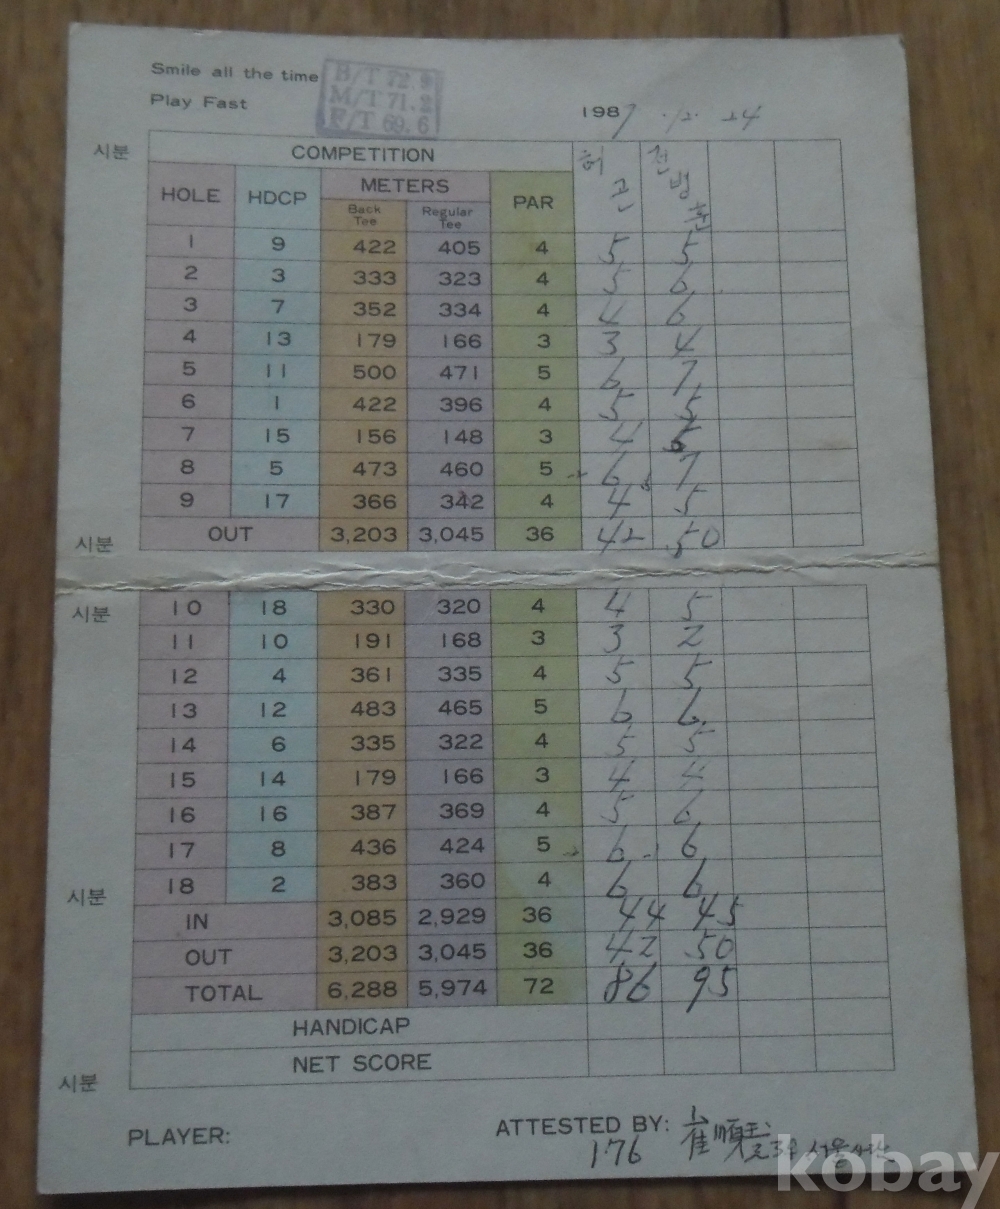 Smile all the time
Play Fast
B/T 72.9
M/T 71.2
F/T 69.6
1987 .12. 24
시분
COMPETITION 허 전
HOLE HDCP METERS PAR
Back Tee Regular Tee
1 9 422 405 4 5 5
2 3 333 323 4 5 6
3 7 352 334 4 4 6
4 13 179 166 3 3 4
5 11 500 471 5 6 7
6 1 422 396 4 5 5
7 15 156 148 3 4 5
8 5 473 460 5 6 7
9 17 366 342 4 4 5
시분 OUT 3,203 3,045 36 42 50
시분 10 18 330 320 4 4 5
11 10 191 168 3 3 2
12 4 361 335 4 5 5
13 12 483 465 5 6 6
14 6 335 322 4 5 5
15 14 179 166 3 4 4
16 16 387 369 4 5 6
17 8 436 424 5 6 6
시분 18 2 383 360 4 6 6
IN 3,085 2,929 36 44 45
OUT 3,203 3,045 36 42 50
TOTAL 6,288 5,974 72 86 95
HANDICAP
시분 NET SCORE
PLAYER: ATTESTED BY: 崔順玉
176
kobay